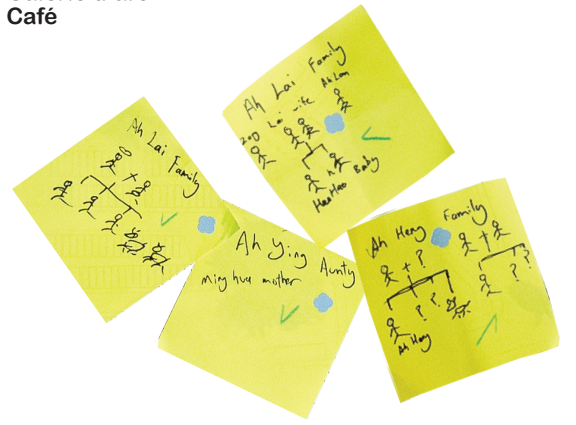 Café
Ah Lai Family
Ah Lai Family
Lai wife Ah Lan
Baby
Hao Hao
Ah Ying
Aunty
ming hua mother
Ah Heng Family
+ ?
? ?
? ?
Ah Heng